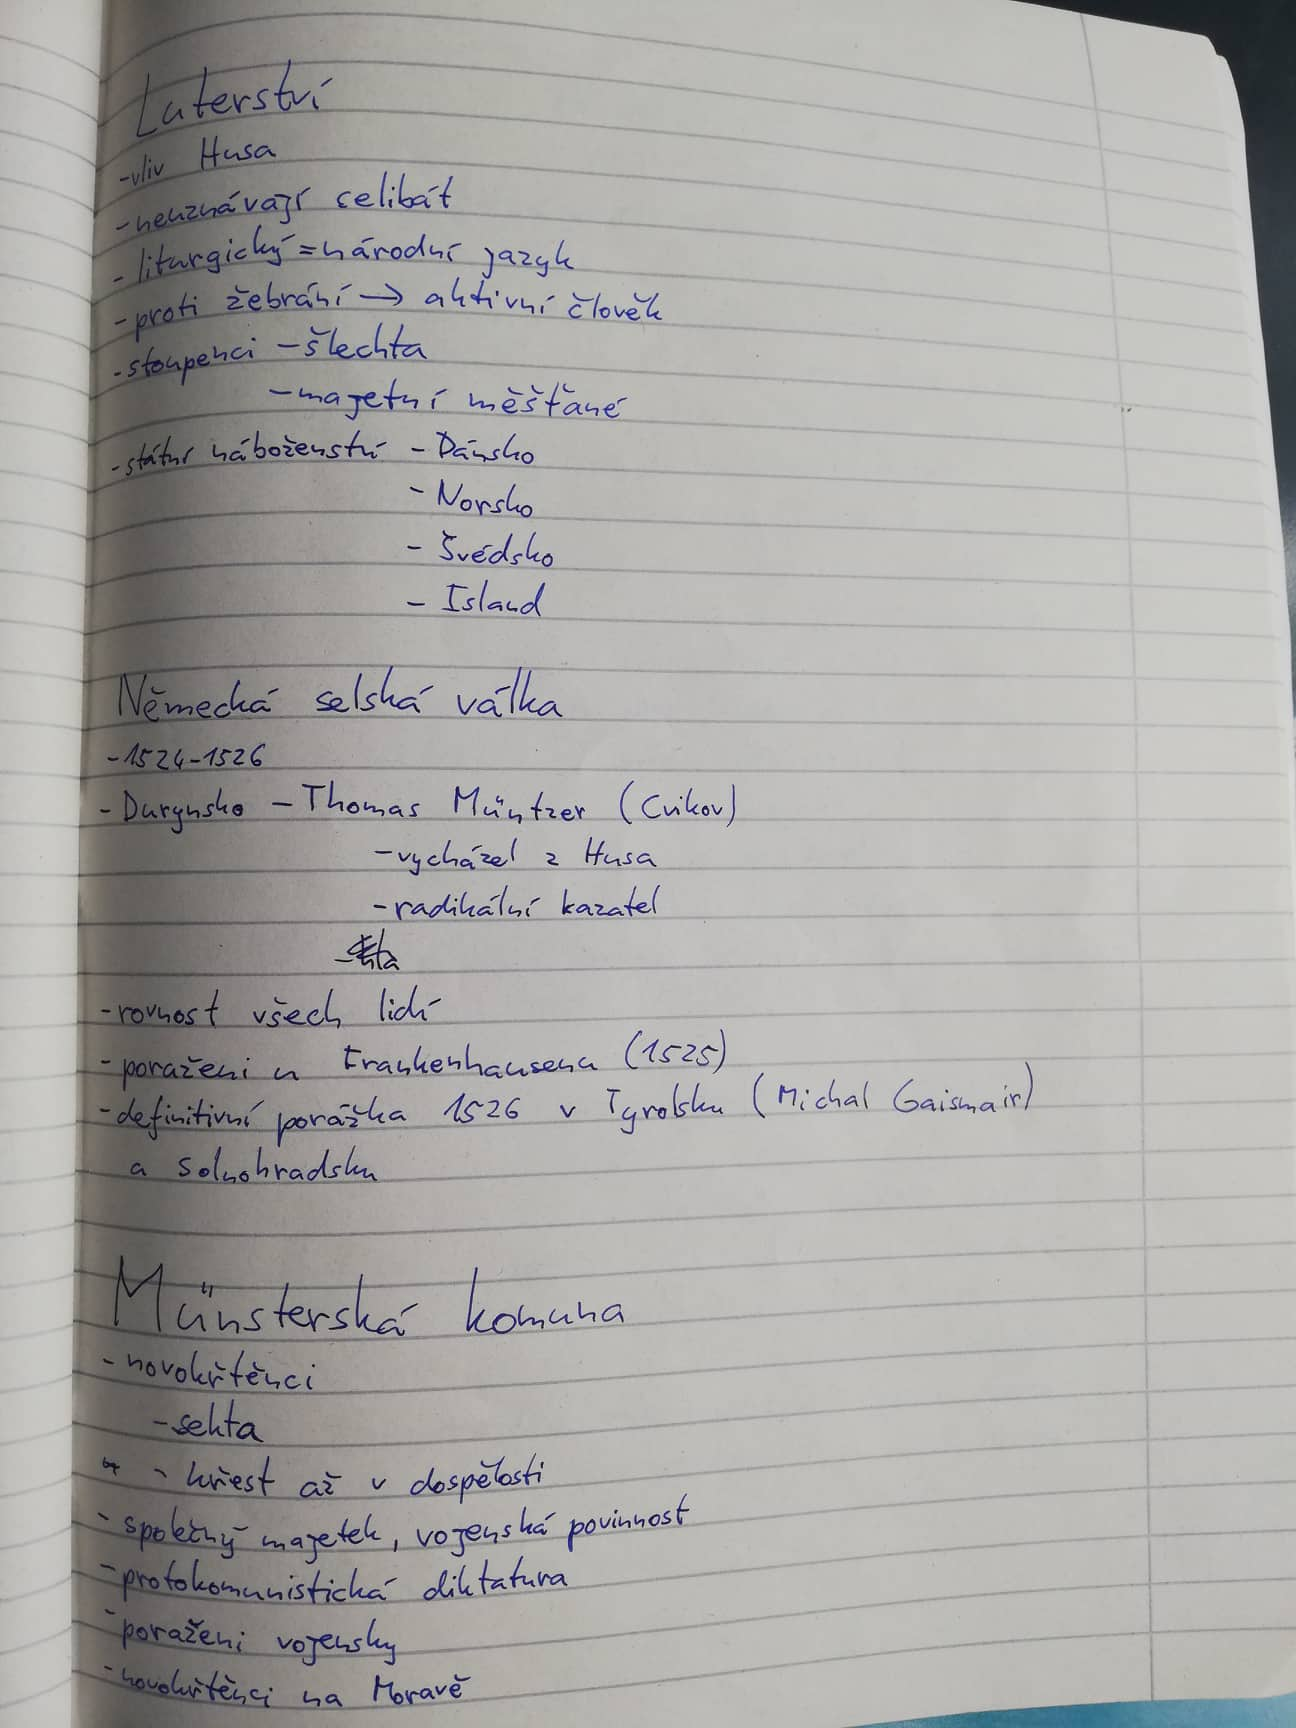 Luterství
-vliv Husa
-neuznávají celibát
-liturgický = národní jazyk
-proti žebrání → aktivní člověk
-stoupenci - šlechta
-majetní měšťané
-státní náboženství - Dánsko
- Norsko
- Švédsko
- Island
Německá selská válka
-1524-1526
-Durynsko - Thomas Müntzer (Cvikov)
-vycházel z Husa
-radikální kazatel
-rovnost všech lidí
-poraženi u Frankenhausenu (1525)
-definitivní porážka 1526 v Tyrolsku (Michal Gaismair)
a Solnohradsku
Münsterská komuna
- novokřtěnci
-sekta
- křest až v dospělosti
- společný majetek, vojenská povinnost
- protokomunistická diktatura
- poraženi vojensky
- novokřtěnci na Moravě